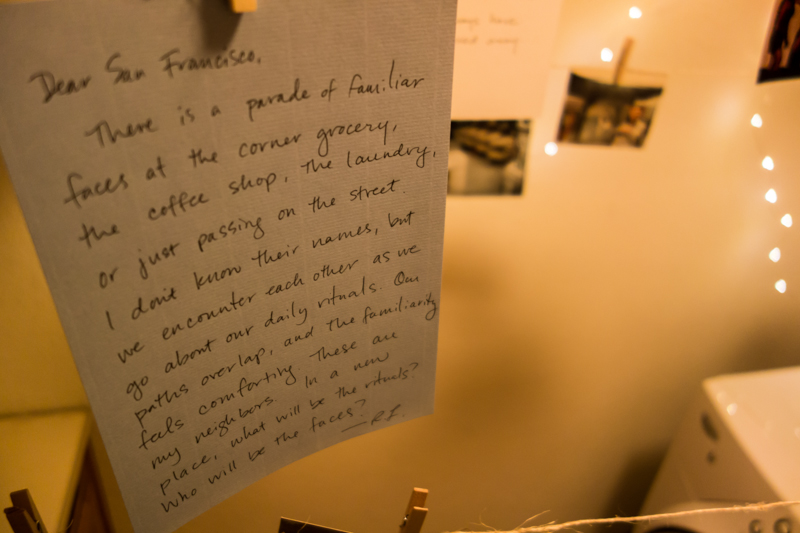 Dear San Francisco,
There is a parade of familiar
faces at the corner grocery,
the coffee shop, the laundry,
or just passing on the street.
I don't know their names, but
we encounter each other as we
go about our daily rituals. Our
paths overlap, and the familiarity
feels comforting. These are
my neighbors. In a new
place, what will be the rituals?
Who will be the faces?
—R.F.
have
away